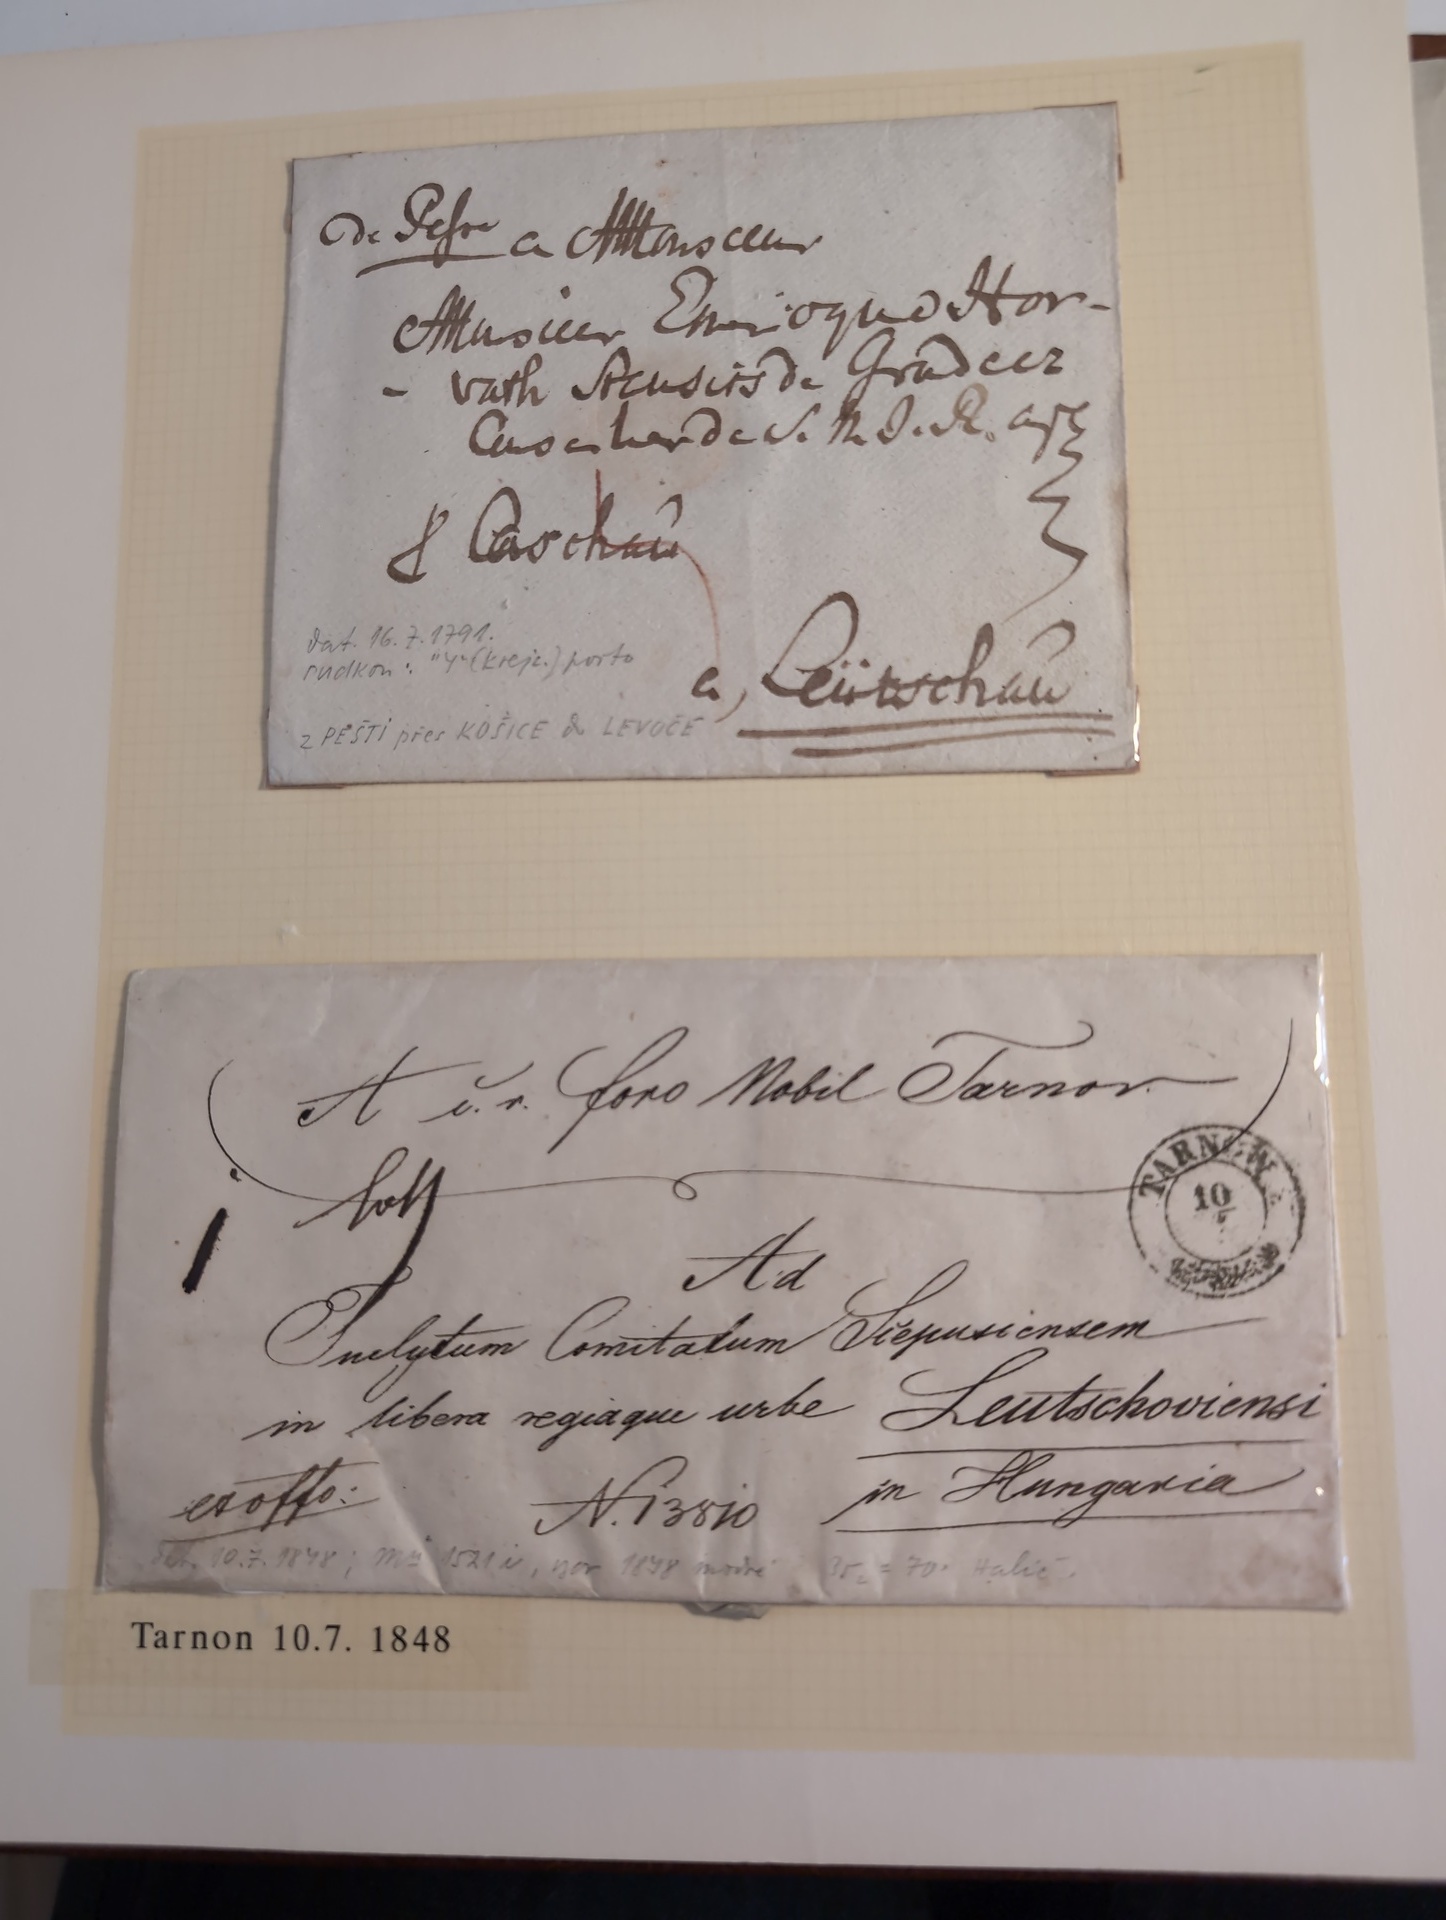 de Peste a Monsieur
Monsieur Emerique Hor-
- vath Stansits de Gradecz
Conseiller de S. M. I. R. Ap
p Caschau
a Leütschau
dat. 16.7.1791.
rudkou: "4" (krejc.) porto
z PEŠTI přes KOŠICE do LEVOČE
A c. r. foro Nobil Tarnov.
TARNOW
10
7
Ad
Inclytum Comitatum Scepusiensem
in libera regiaque urbe Leutschoviensi
exoffo:
N. 13810
in Hungaria
dat. 10.7.1848; Mü 1521 i, 1848 modré
Tarnon 10.7. 1848